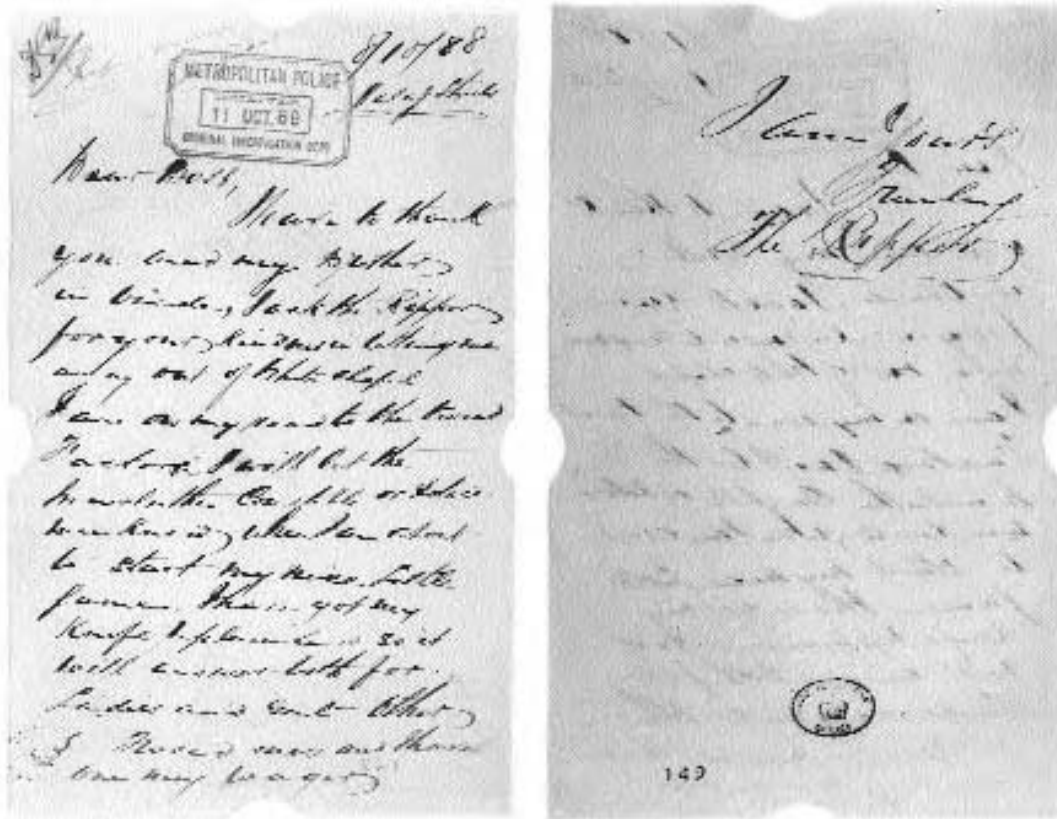 8/10/88
Galashiels
METROPOLITAN POLICE
11 OCT.88
CRIMINAL INVESTIGATION DEPT
Dear Boss,
I have to thank
you and my Brother
in trade, Jack the Ripper
for your kindness in letting me
away out of Whitechapel
I am on my road to the tweed
Factories I will let the
Innerleithen Constable or Police
men know when I am about
to start my nice Little
game. I have got my
Knife replenished so it
will answer both for
Ladies and Gents Other
5 Tweed ones and I have
won my wager
I am Yours
Truly
The Ripper
149